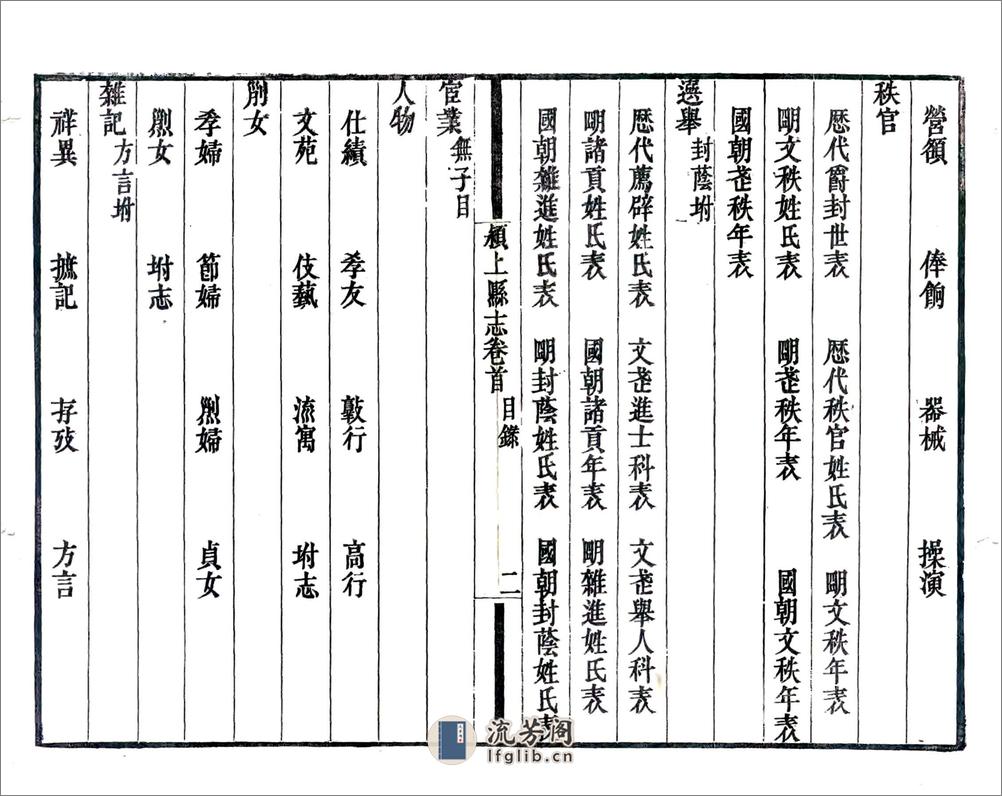 營額　俸餉　器械　操演
秩官
歷代爵封世表　歷代秩官姓氏表　明文秩年表
明文秩姓氏表　明武秩年表　國朝文秩年表
國朝武秩年表
選舉封蔭坿
歷代薦辟姓氏表　文武進士科表　文武舉人科表
明諸貢姓氏表　國朝諸貢年表　明雜進姓氏表
國朝雜進姓氏表　明封蔭姓氏表　國朝封蔭姓氏表
潁上縣志卷首　目錄　二
宦業無子目
人物
仕績　孝友　敦行　高行
文苑　伎藝　流寓　坿志
列女
孝婦　節婦　烈婦　貞女
烈女　坿志
雜記方言坿
祥異　摭記　存攷　方言
流芳閣
lfglib.cn